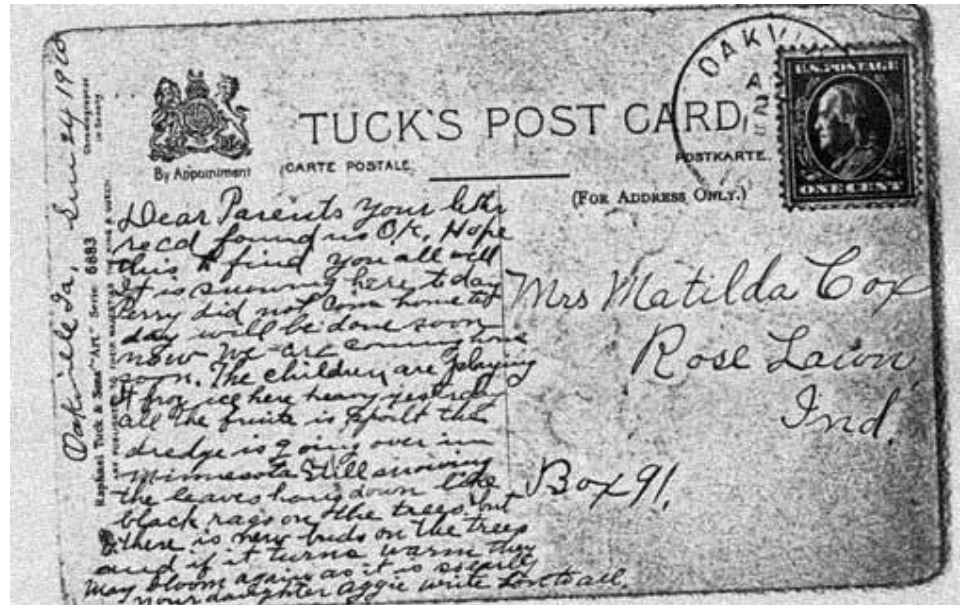 Oakville Ia, Sun 24 1910
Chromographed
in Saxony.
Raphael Tuck & Sons' "Art" Series 6883
ART PUBLISHERS TO THEIR MAJESTIES THE KING & QUEEN
By Appointment
TUCK'S POST CARD
CARTE POSTALE
POSTKARTE.
(FOR ADDRESS ONLY.)
OAKVI
A
U.S. POSTAGE
ONE CENT
Dear Parents Your letter
recd found us O.K. Hope
this find you all well
It is snowing here today
Perry did not Come home to
day will be done soon
now We are coming home
soon. The children are playing
It froze ice here heavy yesterday
all the fruite is spoilt the
dredge is going over in
Minnesota Still snowing
the leaves hang down like
black rags on the trees but
there is new buds on the trees
and if it turns warm they
may bloom again as it is so early
your daughter Aggie write love to all.
Mrs Matilda Cox
Rose Lawn
Ind.
Box 91.